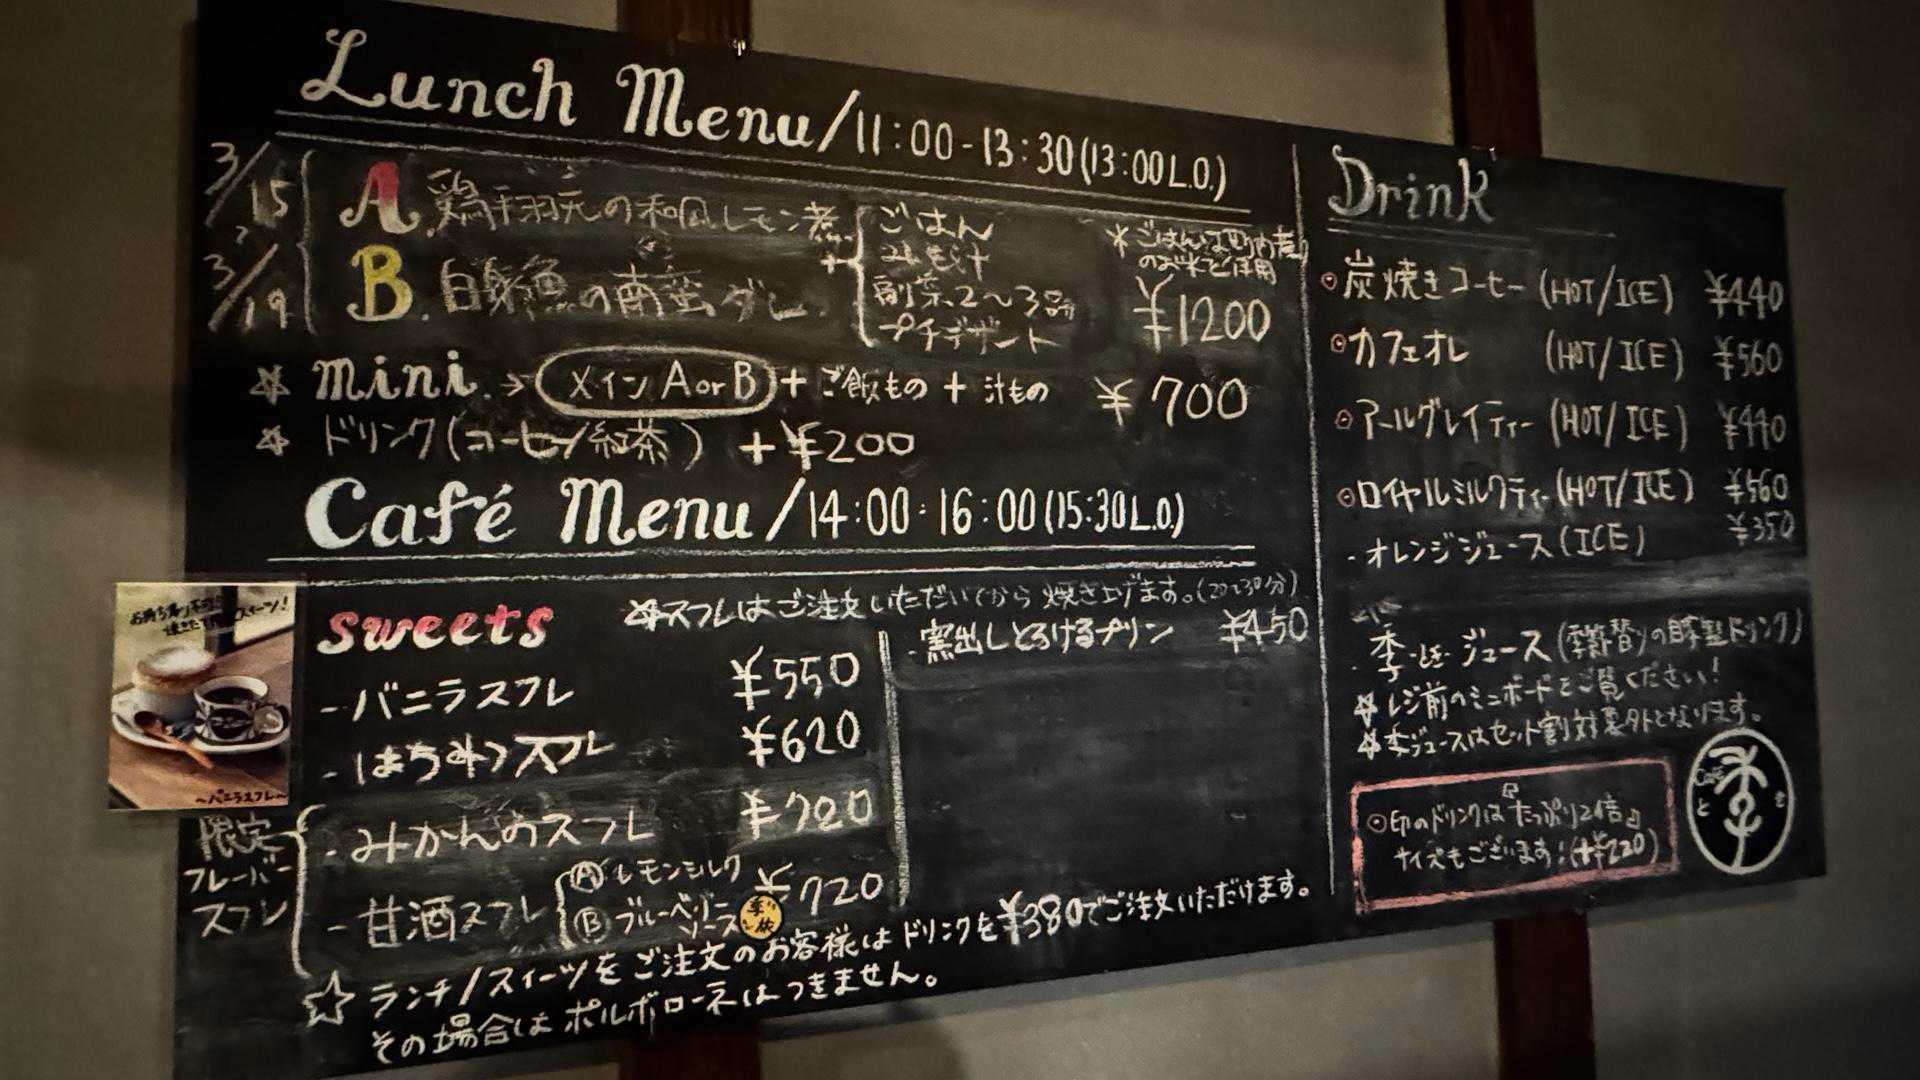 Lunch Menu/11:00-13:30(13:00L.O.)
3/15
3/19
A.鶏手羽元の和風レモン煮
B.白身魚の南蛮ダレ
+
ごはん
みそ汁
副菜2〜3品
プチデザート
*ごはんは町内産
のお米を使用
¥1200
☆mini.→メインAorB+ご飯もの+汁もの ¥700
☆ドリンク(コーヒー/紅茶) +¥200
Café Menu/14:00-16:00(15:30L.O.)
sweets
☆スフレはご注文いただいてから焼き上げます。(20〜30分)
-バニラスフレ ¥550
-はちみつスフレ ¥620
限定
フレーバー
スフレ
-みかんのスフレ ¥720
-甘酒スフレ ¥720
Ⓐレモンミルク
Ⓑブルーベリー
ソース
・窯出しとろけるプリン ¥450
☆ランチ/スイーツをご注文のお客様はドリンクを¥380でご注文いただけます。
その場合はポルボローネはつきません。
〜バニラスフレ〜
Drink
⊙炭焼きコーヒー(HOT/ICE) ¥440
⊙カフェオレ (HOT/ICE) ¥560
⊙アールグレイティー(HOT/ICE) ¥440
⊙ロイヤルミルクティー(HOT/ICE) ¥560
・オレンジジュース(ICE) ¥350
・季ジュース(季節替りの自家製ドリンク)
☆レジ前のミニボードをご覧ください!
☆季ジュースはセット割対象外となります。
⊙印のドリンクは『たっぷり2倍』
サイズもございます!(+¥220)
Café
と
季